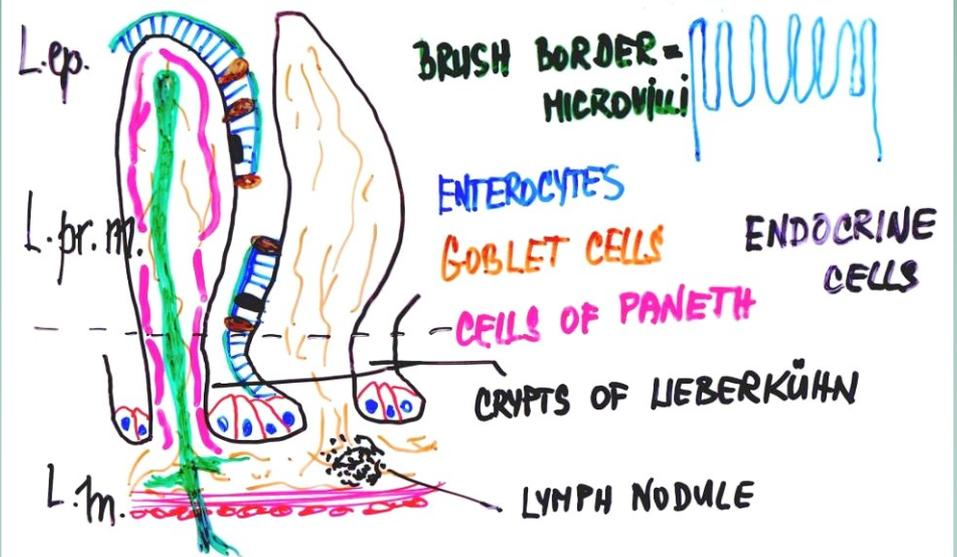 L.ep.
BRUSH BORDER =
MICROVILLI
ENTEROCYTES
GOBLET CELLS
ENDOCRINE
CELLS
L.pr.m.
CELLS OF PANETH
CRYPTS OF LIEBERKÜHN
L.m.
LYMPH NODULE